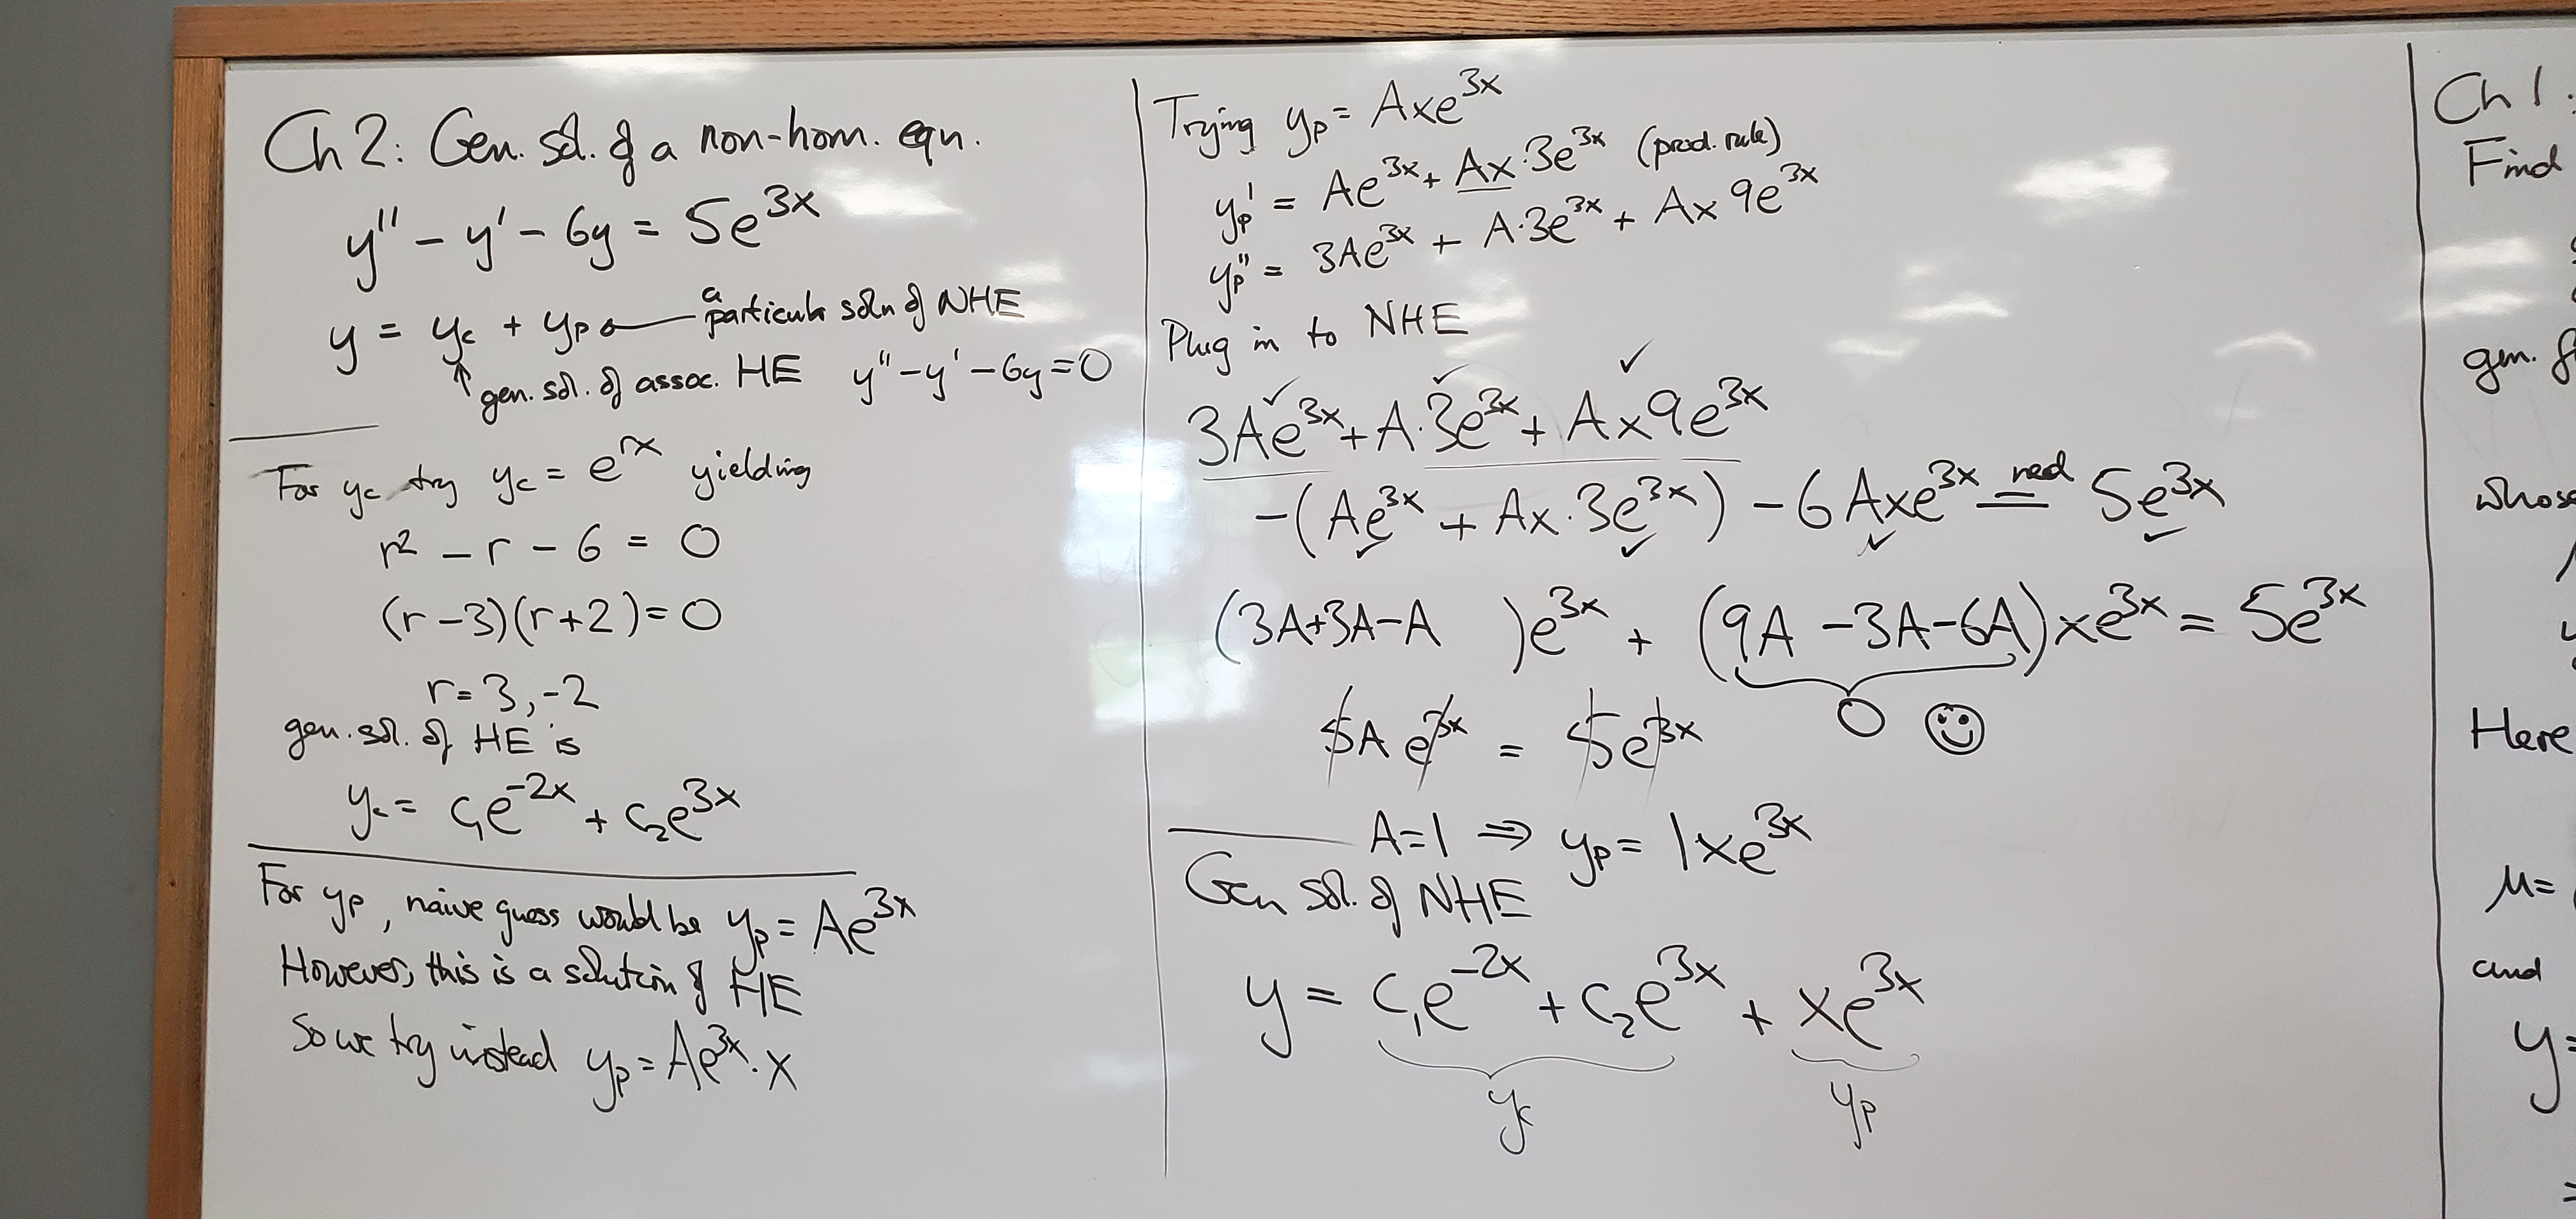 Ch 2: Gen. sol. of a non-hom. eqn.
y'' - y' - 6y = 5e^{3x}
y = y_c + y_p ← a particular soln of NHE
↑ gen. sol. of assoc. HE y'' - y' - 6y = 0
For y_c try y_c = e^{rx} yielding
r² - r - 6 = 0
(r-3)(r+2) = 0
r = 3, -2
gen. sol. of HE is
y_c = c₁e^{-2x} + c₂e^{3x}
For y_p, naive guess would be y_p = Ae^{3x}
However, this is a solution of HE
So we try instead y_p = Ae^{3x} · x
Trying y_p = Axe^{3x}
y_p' = Ae^{3x} + Ax·3e^{3x} (prod. rule)
y_p'' = 3Ae^{3x} + A·3e^{3x} + Ax 9e^{3x}
Plug in to NHE
3Ae^{3x} + A·3e^{3x} + Ax9e^{3x}
-(Ae^{3x} + Ax·3e^{3x}) - 6Axe^{3x} = 5e^{3x}
(3A+3A-A )e^{3x} + (9A - 3A - 6A)xe^{3x} = 5e^{3x}
0 ☺
5A e^{3x} = 5e^{3x}
A=1 ⇒ y_p = 1xe^{3x}
Gen sol. of NHE
y = c₁e^{-2x} + c₂e^{3x} + xe^{3x}
y_c y_p
Ch 1:
Find
gen.
whose
Here
μ=
and
y=